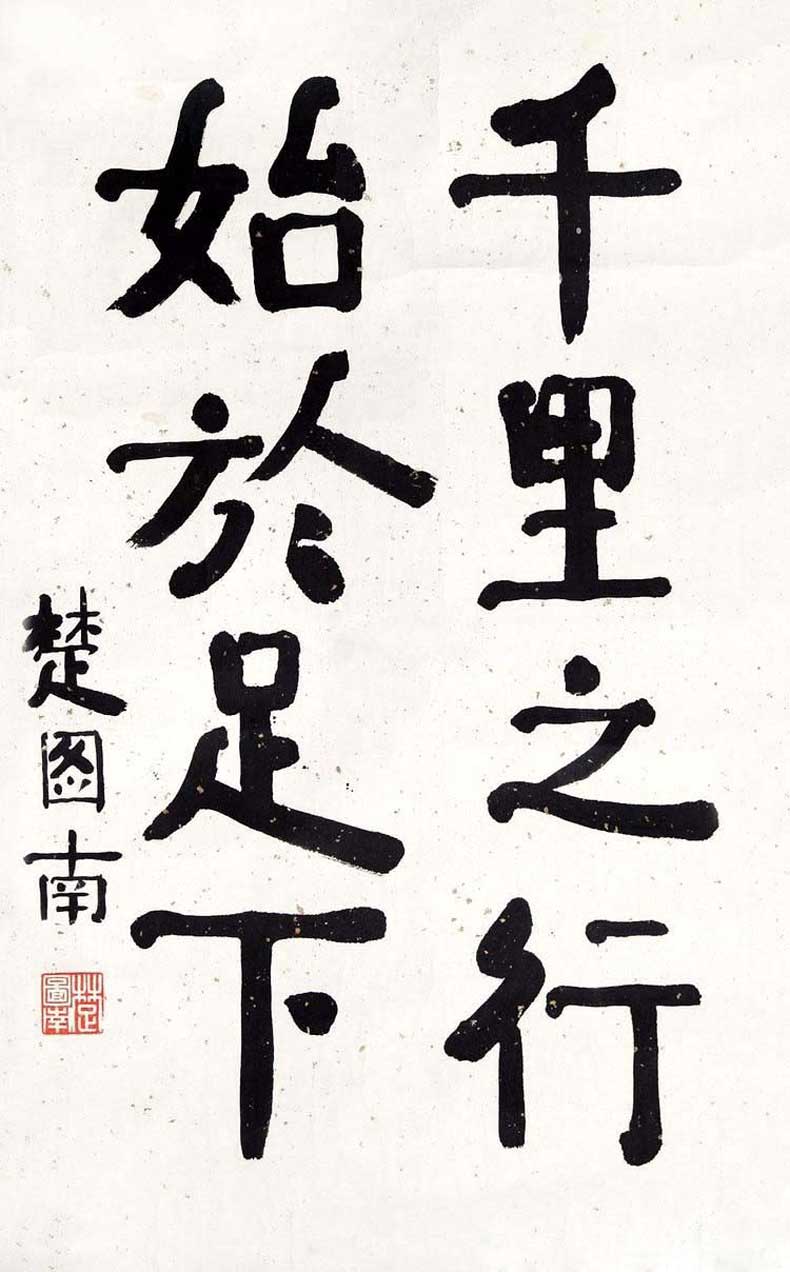 千里之行
始於足下
楚图南
楚圖南